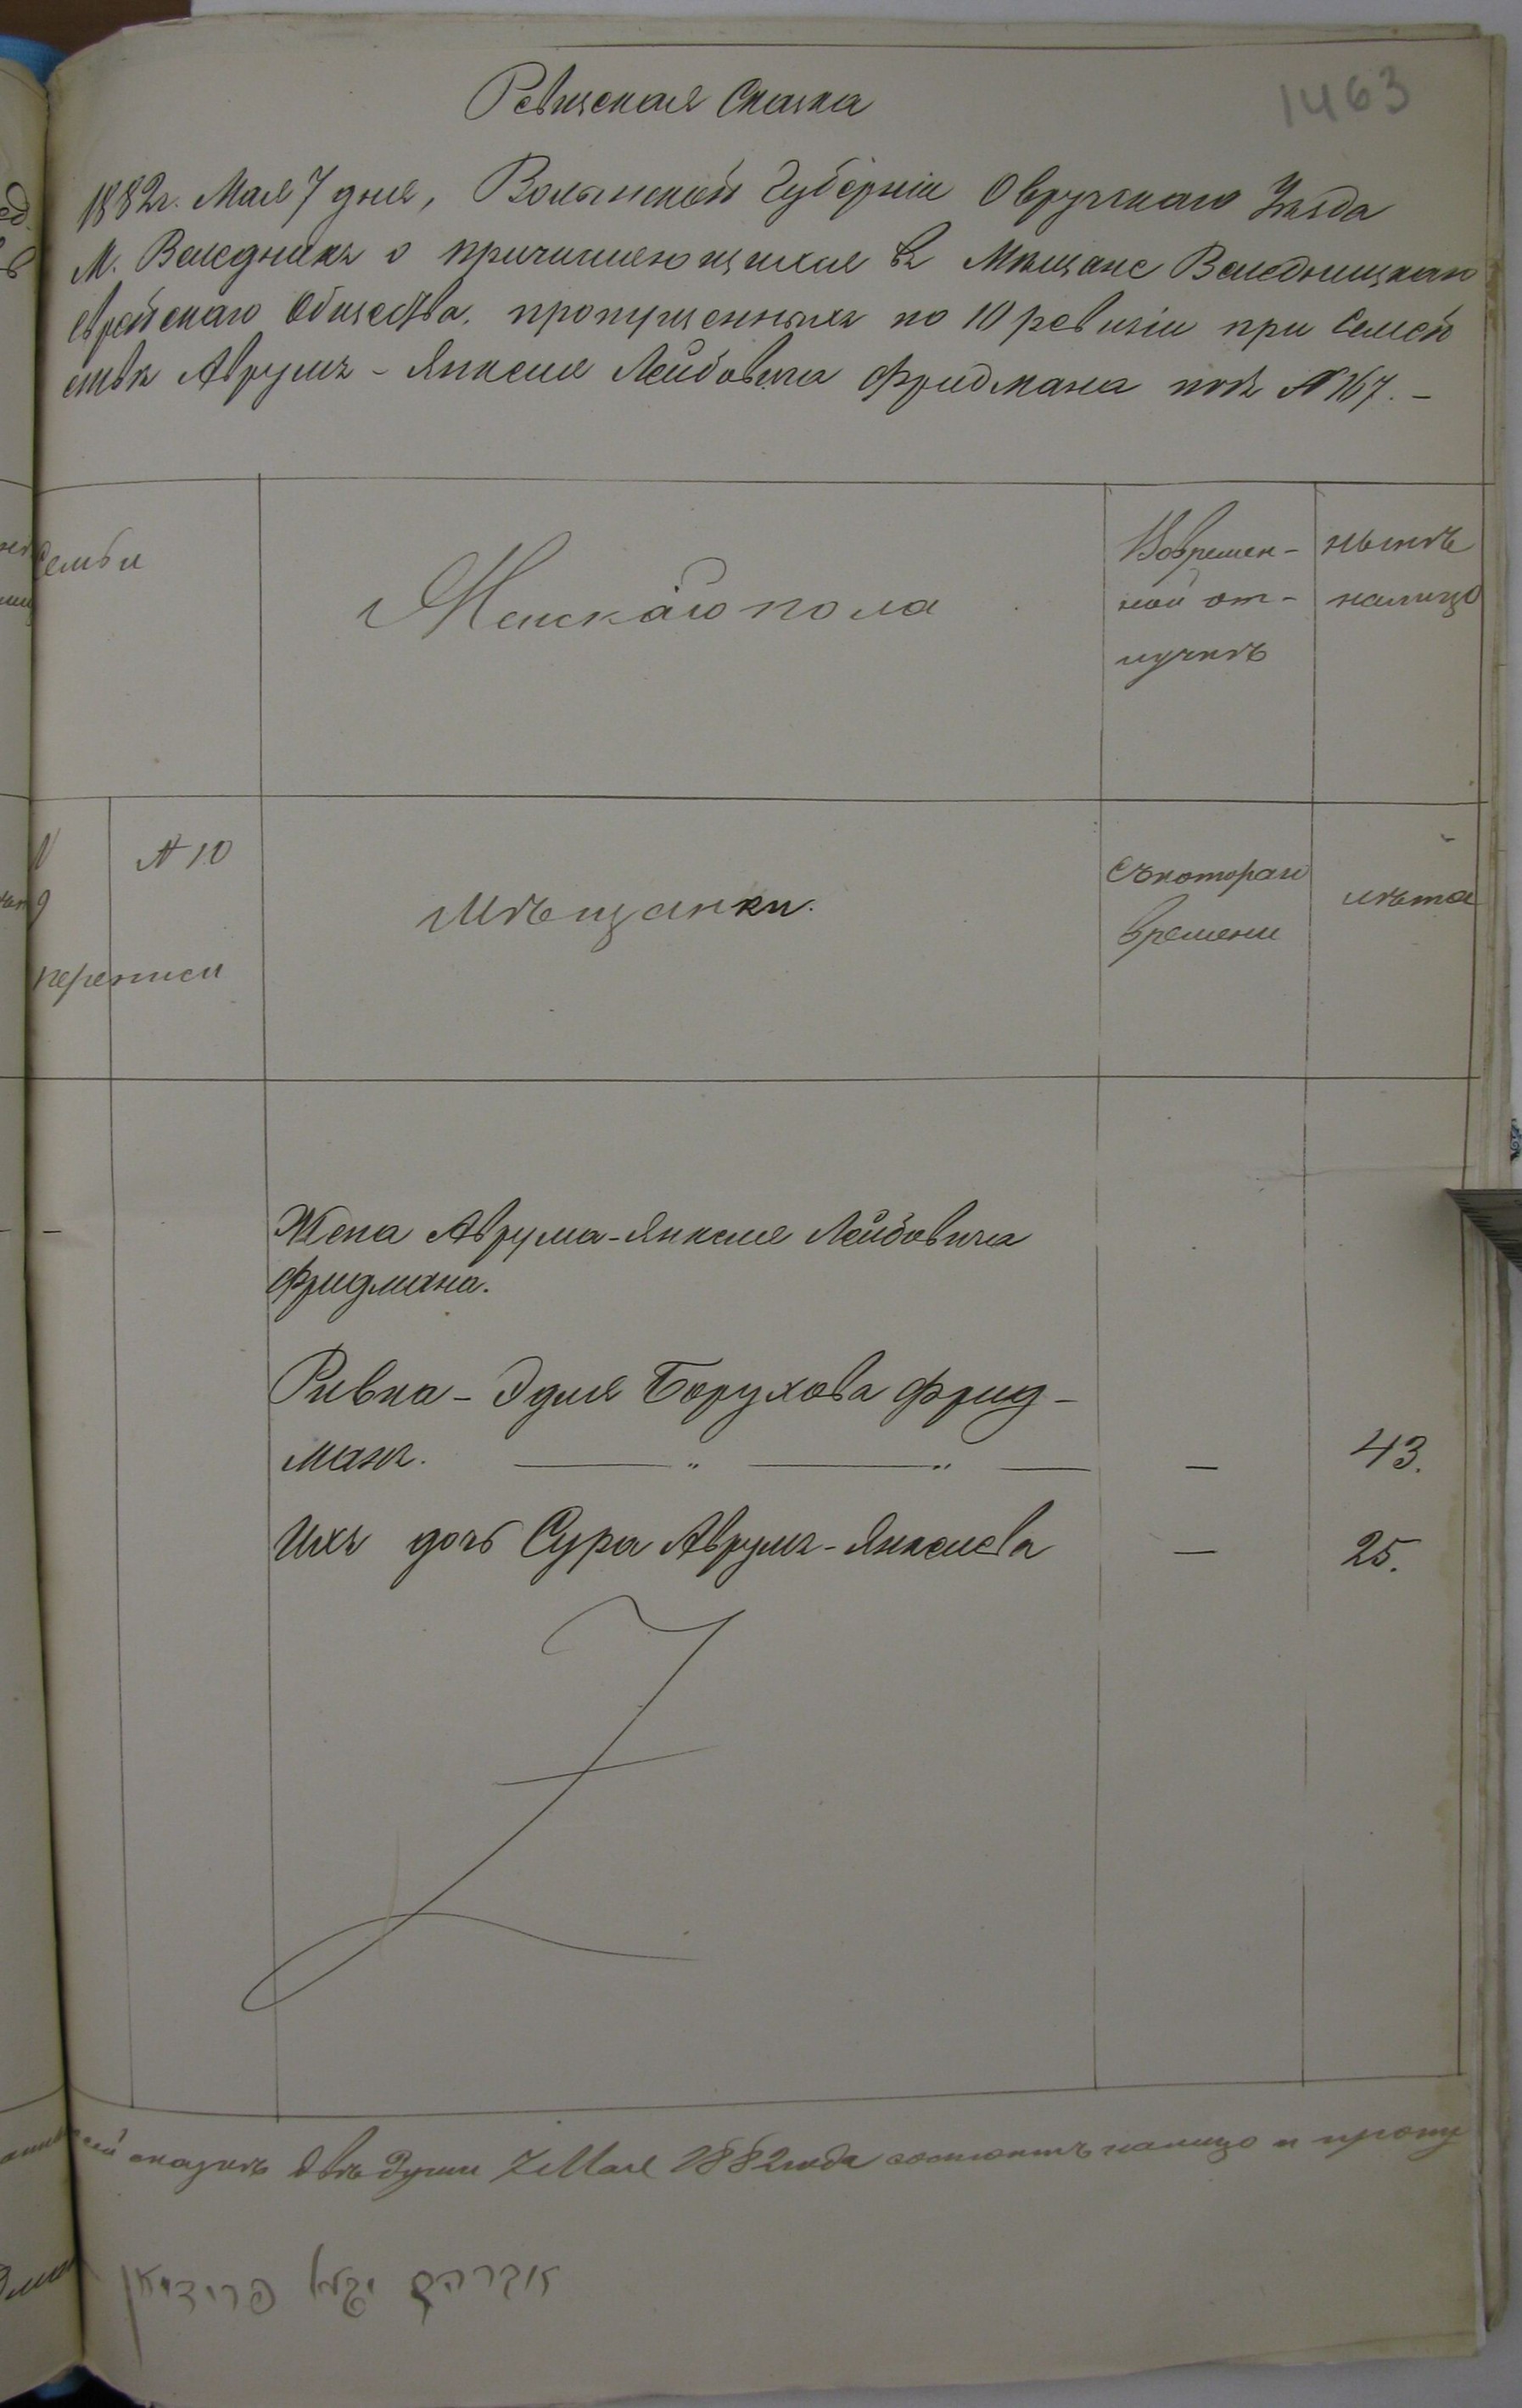 1463
Ревизская Сказка
1882 г. Мая 7 дня, Волынской Губерніи Овручскаго Уѣзда
М. Веледникъ о причисляющихся въ Мѣщане Веледницкаго
Еврейскаго Общества, пропущенныхъ по 10 ревизіи при Семей
ствѣ Аврумъ - Янкеля Лейбовича Фридмана подъ № 167. –
Семьи
Женскаго пола
Вовремен-
ной от-
лучкѣ
нынѣ
налицо
№ 10
переписи
Мѣщанки.
Съкотораго
времени
лѣта
Жена Аврума-Янкеля Лейбовича
Фридмана.
Ривка - Эдля Борухова Фрид-
манъ. — " — " — — 43.
Ихъ дочь Сура Аврумъ-Янкелева — 25.
сказкѣ двѣ души 7 Мая 1882 года состоятъ налицо и пропу
אברהם יעקל פרידמאן